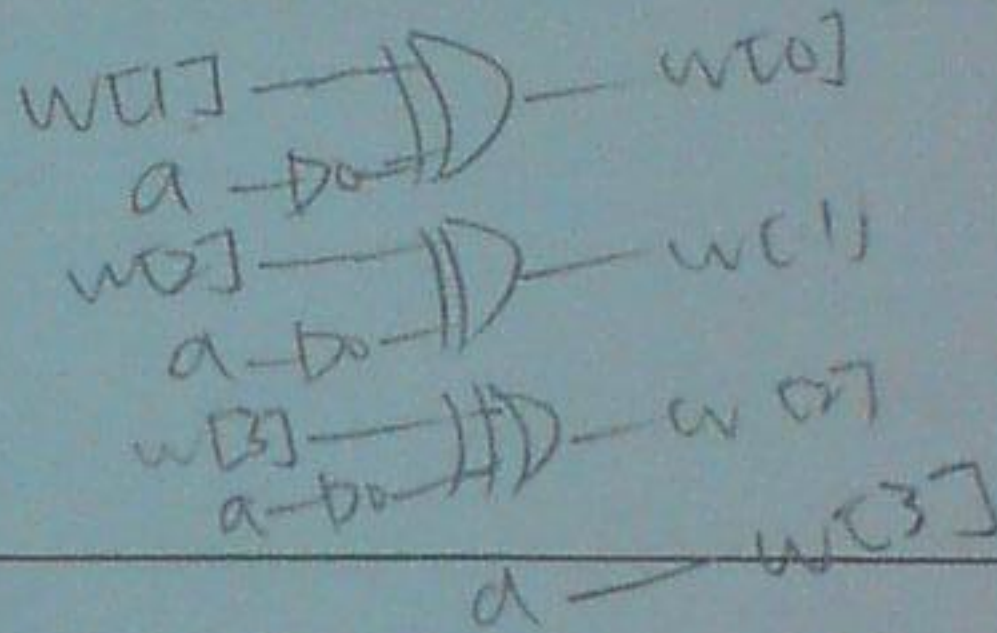 w[1] w[0]
a
w[2] w[1]
a
w[3] w[2]
a
a w[3]